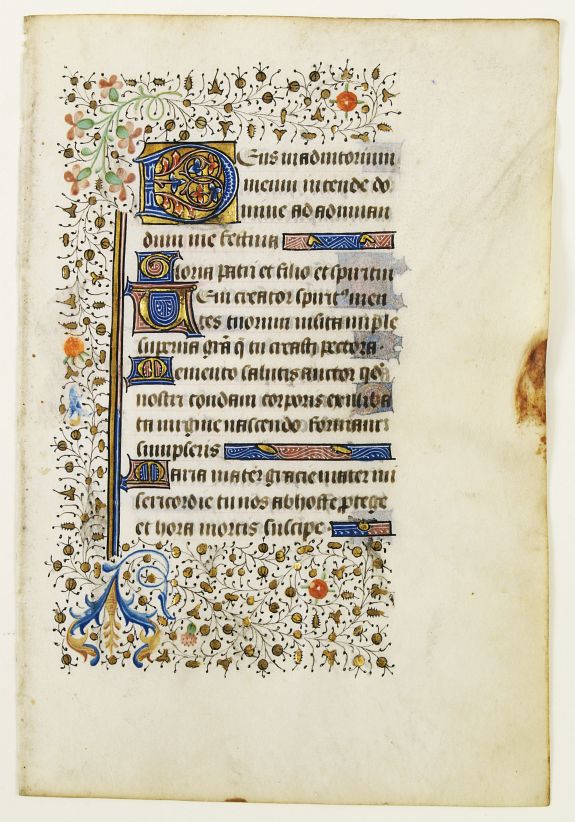 Deus in adiutorium
meum intende do
mine ad adiuuan
dum me festina
Gloria patri et filio et spiritui
Ueni creator spiritus men
tes tuorum uisita imple
superna gra q tu creasti pectora
Memento salutis auctor qd
nostri condam corporis ex iliba
ta uirgine nascendo formam
sumpseris
Maria mater gracie mater mi
sericordie tu nos ab hoste protege
et hora mortis suscipe